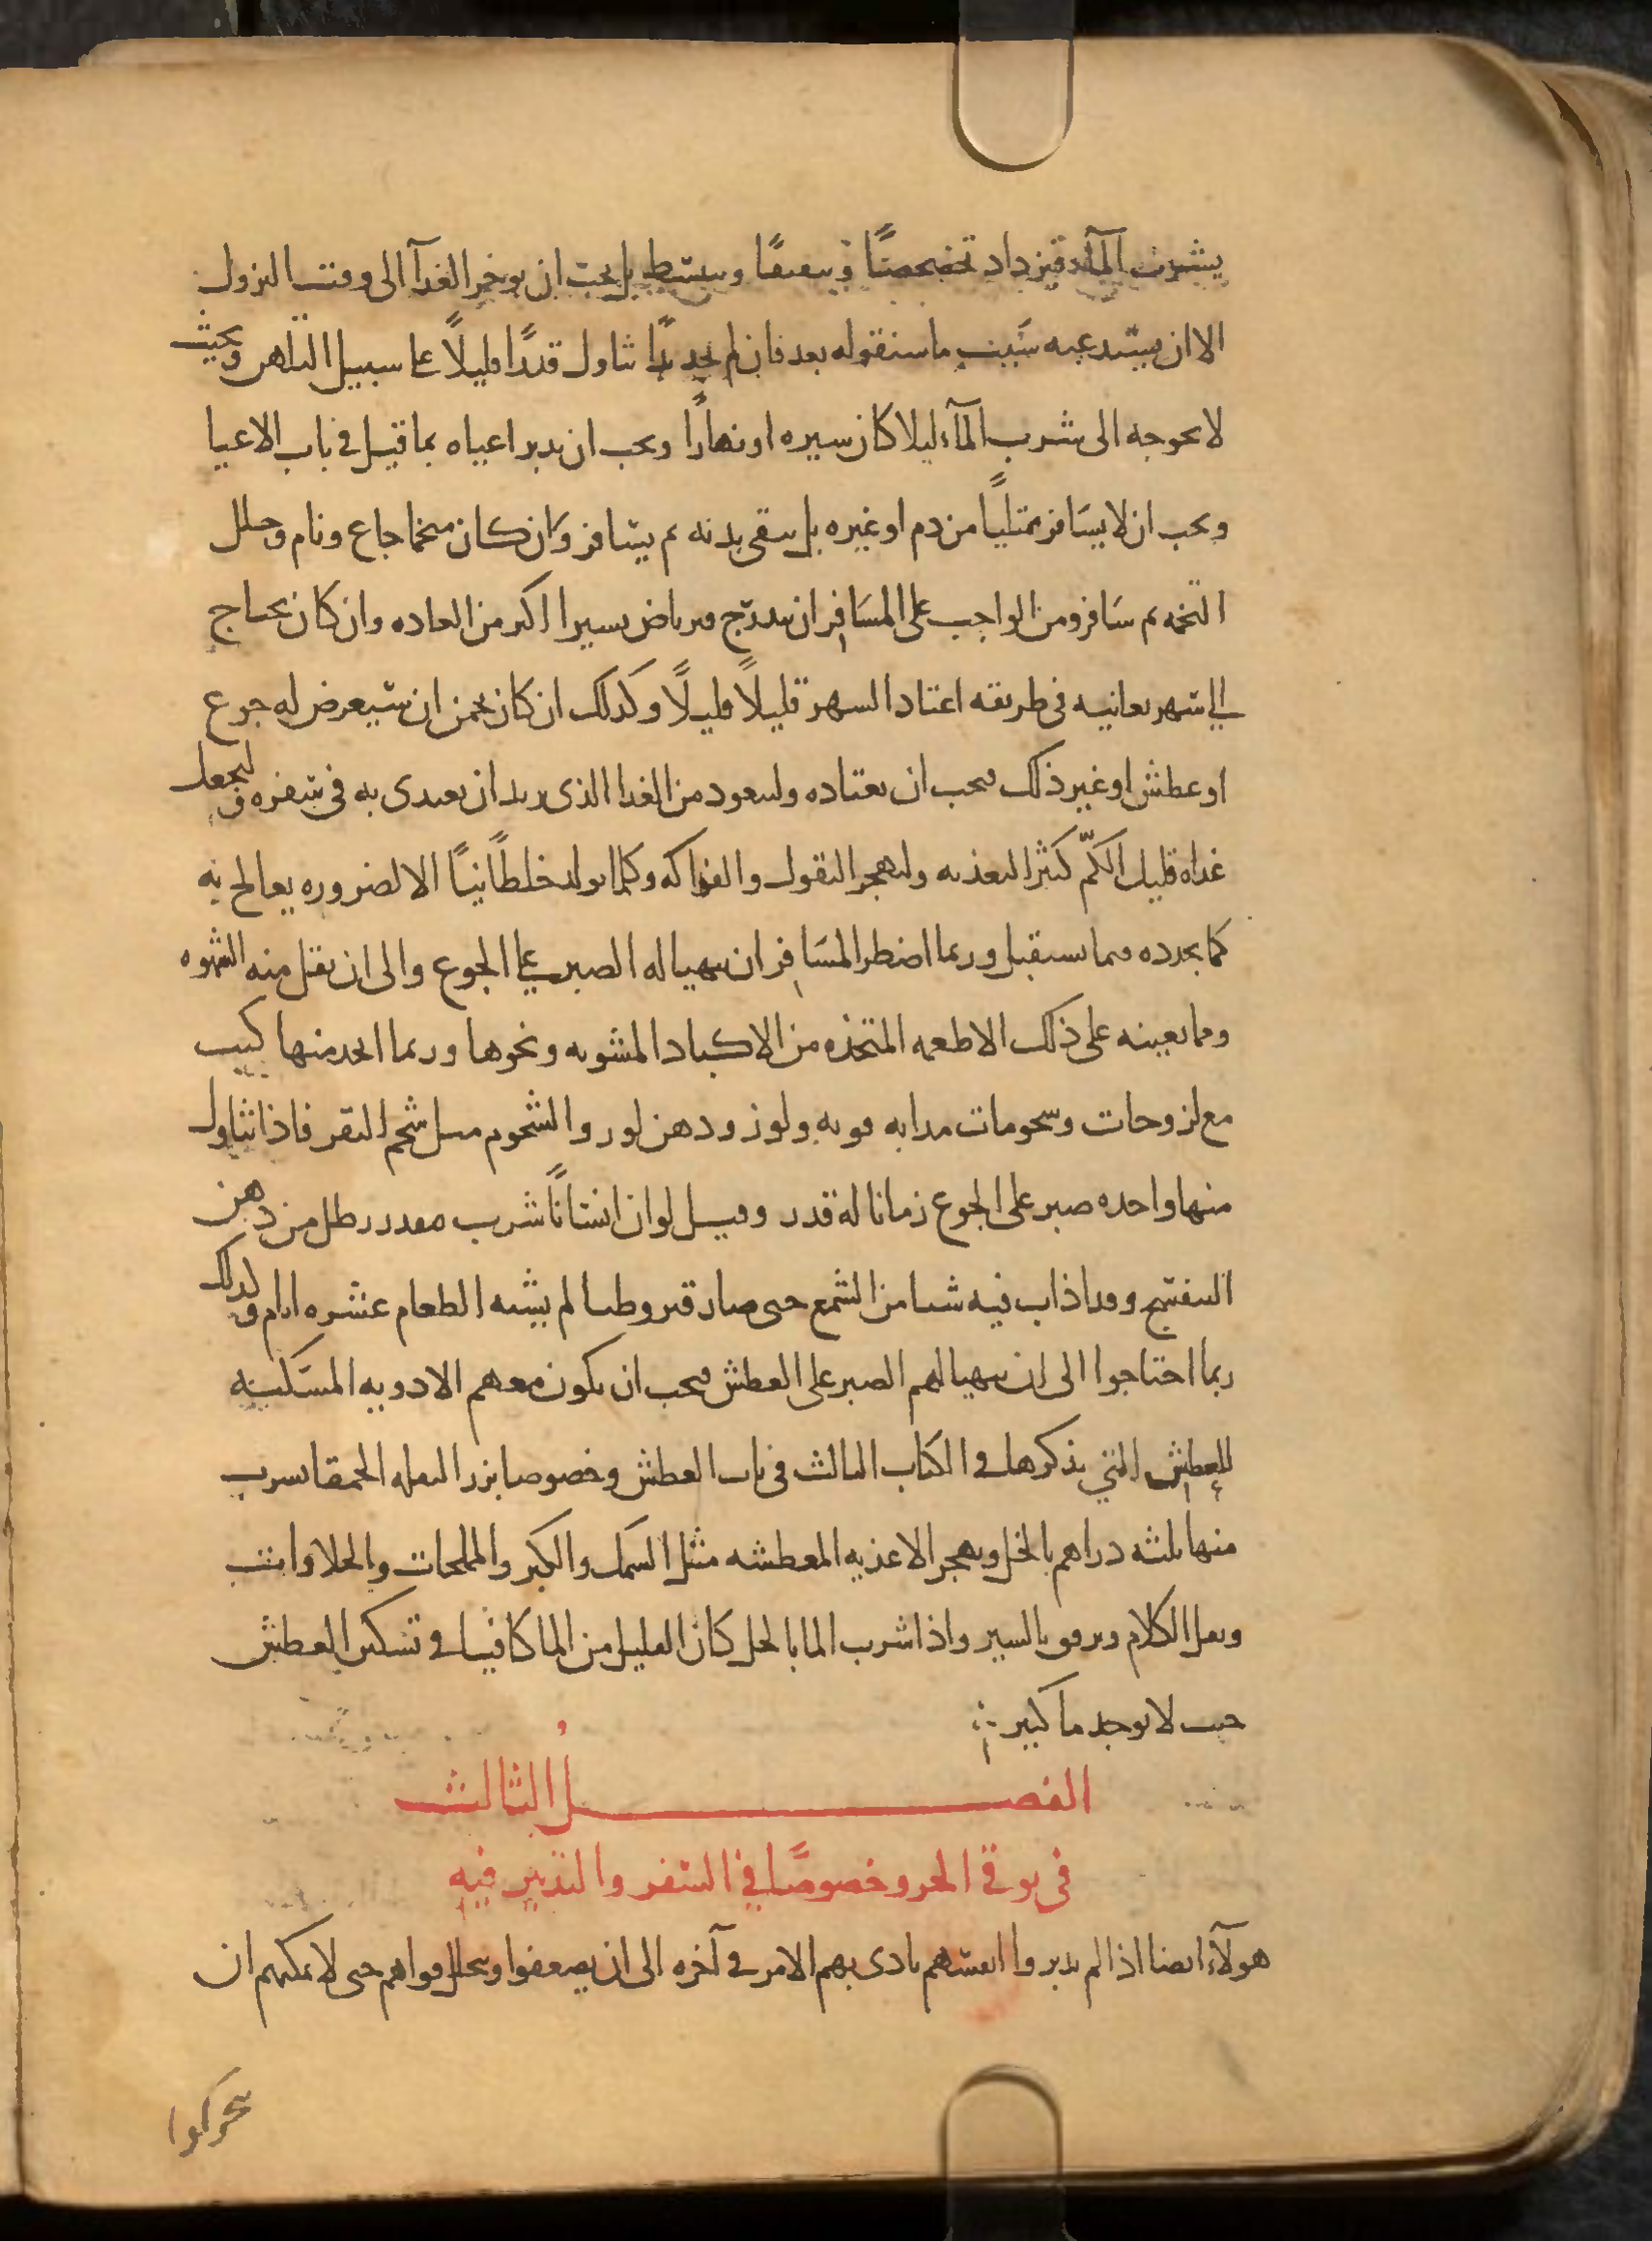 يشرب المآء فيزداد تخضخضًا وتبقبقًا وينبسط بل يجب ان يوخر الغدآ الى وقت النزول
الا ان يستدعيه سبب ما سنقوله بعد فان لم يجد بدًا تناول قدرًا قليلًا على سبيل التلهى وبحيث
لا يحوجه الى شرب المآء ليلا كان سيره او نهارًا ويجب ان يدبر اعياه بما قيل في باب الاعيا
ويجب ان لا يسافر ممتليًا من دم او غيره بل ينقى بدنه ثم يسافر وان كان متخما جاع ونام وحلل
التخمه ثم سافر ومن الواجب على المسافر ان يتدرج ويرتاض يسيرا اكثر من العاده وان كان يحتاج
الى سهر يعانيه فى طريقه اعتاد السهر قليلًا قليلًا وكدلك ان كان يخمن ان سيعرض له جوع
او عطش او غير ذلك فيجب ان يعتاده وليتعود من الغدا الذى يريد ان يغتدى به فى سفره وليجعل
غداه قليل الكمّ كثير التغذيه وليهجر البقول والفواكه وكلما يولد خلطًا نيًا الا لضروره يعالج به
كما يحدده فيما يستقبل وربما اضطر المسافر ان يتهيا له الصبر على الجوع والى ان يقل منه الشهوه
ومما يعينه على ذلك الاطعمه المتخذه من الاكباد المشويه ونحوها وربما اتخد منها كبب
مع لزوجات وشحومات مدابه قويه ولوز ودهن لوز والشحوم مثل شحم البقر فاذا تناول
منها واحده صبر على الجوع زمانا له قدر وقيل لو ان انسانًا شرب مقدر رطل من دهن
البنفسج وقد اذاب فيه شيا من الشمع حتى صار قيروطيا لم يشته الطعام عشره ايام وكدلك
ربما احتاجوا الى ان يتهيا لهم الصبر على العطش فيجب ان يكون معهم الادويه المسكنه
للعطش التي نذكرها في الكتاب الثالث فى باب العطش وخصوصا بزر البقله الحمقا يشرب
منها ثلثه دراهم بالخل ويهجر الاغذيه المعطشه مثل السمك والكبر والمملحات والحلاوات
ويقل الكلام ويرفق بالسير واذا شرب الما بالخل كان القليل من الما كافيا في تسكين العطش
حيث لا يوجد ما كثير
الفصل الثالث
فى توقي الحر وخصوصًا في السفر والتدبير فيه
هولآء ايضا اذا لم يدبروا انفسهم تادى بهم الامر في آخره الى ان يضعفوا وتحلل قواهم حتى لا يمكنهم ان
يتحركوا